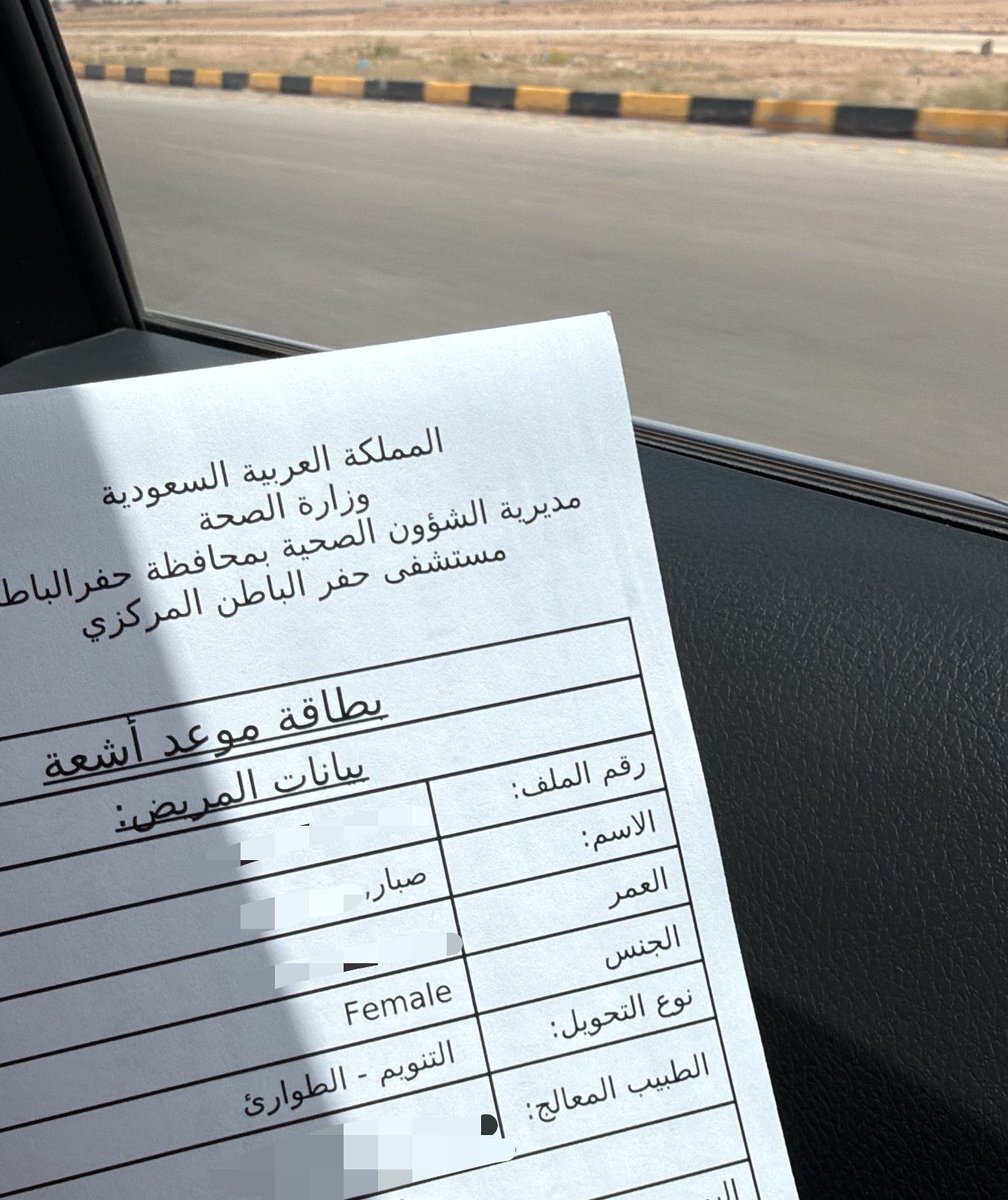 المملكة العربية السعودية
وزارة الصحة
مديرية الشؤون الصحية بمحافظة
مستشفى حفر الباطن المركزي
بطاقة موعد أشعة
بيانات المريض:
رقم الملف:
الاسم: صبار,
العمر
الجنس Female
نوع التحويل: التنويم - الطوارئ
الطبيب المعالج: